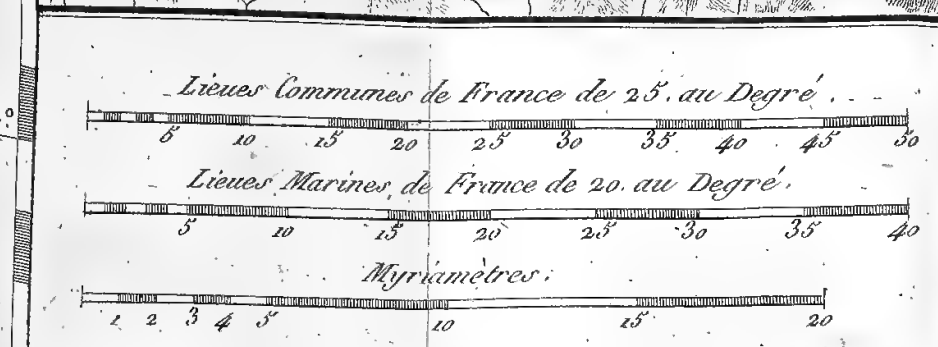 Lieues Communes de France de 25. au Degré.
5 10 15 20 25 30 35 40 45 50
Lieues Marines de France de 20. au Degré.
5 10 15 20 25 30 35 40
Myriamètres.
1 2 3 4 5 10 15 20